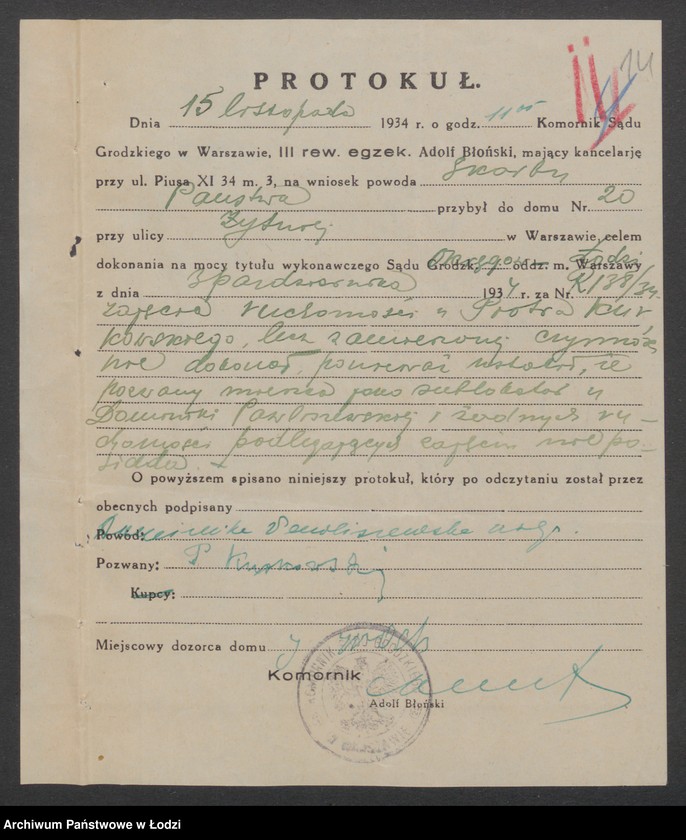 14
PROTOKUŁ.
Dnia 15 listopada 1934 r. o godz. 11 Komornik Sądu
Grodzkiego w Warszawie, III rew. egzek. Adolf Błoński, mający kancelarję
przy ul. Piusa XI 34 m. 3, na wniosek powoda Skarbu
Państwa przybył do domu Nr. 20
przy ulicy Żytniej w Warszawie, celem
dokonania na mocy tytułu wykonawczego Sądu Grodzk. Okręgow. oddz. m. Warszawy Łodzi
z dnia 3 października 1934 r. za Nr. K 138/34
zajęcia ruchomości u Piotra Kur
kowskiego, lecz zamierzonej czynności
nie dokonał, ponieważ ustalił, że
pozwany mieszka jako sublokator u
Dominiki Pawliszewskiej i żadnych ru-
chomości podlegających zajęciu nie po-
siada.
O powyższem spisano niniejszy protokuł, który po odczytaniu został przez
obecnych podpisany
Powód: Dominika Pawliszewska
Pozwany: P Kurkowski
Kupcy:
Miejscowy dozorca domu
Komornik
Adolf Błoński
KOMORNIK SĄDU GRODZKIEGO W WARSZAWIE
Archiwum Państwowe w Łodzi